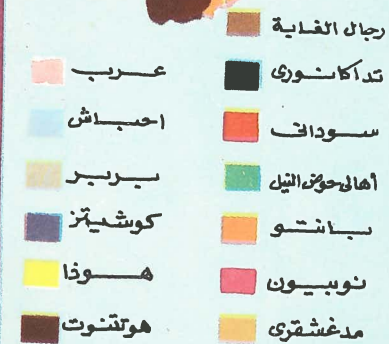 رجال الغابة
تداكانورى
سودانى
أهالى حوض النيل
بانتو
نوبيون
مدغشقرى
عرب
احباش
بربر
كوشيتز
هوذا
هوتنتوت